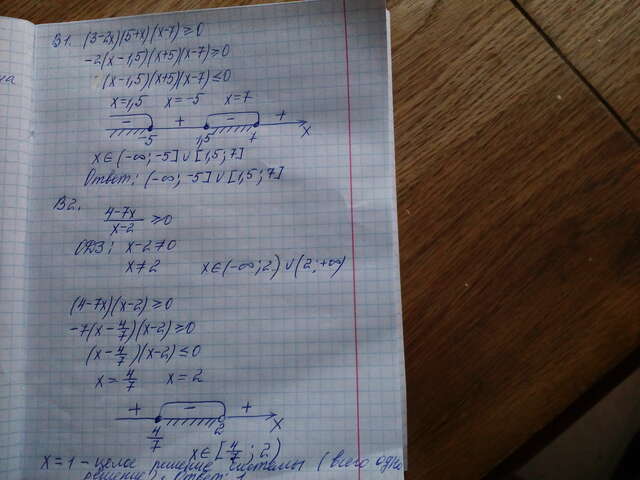 на
В1. (3-2x)(5+x)(x-7)≥0
-2(x-1,5)(x+5)(x-7)≥0
(x-1,5)(x+5)(x-7)≤0
x=1,5 x=-5 x=7
- + - +
-5 1,5 7 x
x∈(-∞;-5]∪[1,5;7]
Ответ: (-∞;-5]∪[1,5;7]
В2.
4-7x/x-2 ≥0
ОДЗ: x-2≠0
x≠2 x∈(-∞;2)∪(2;+∞)
(4-7x)(x-2)≥0
-7(x-4/7)(x-2)≥0
(x-4/7)(x-2)≤0
x=4/7 x=2
+ - +
4/7 2 x
x∈[4/7;2)
x=1 - целое решение системы (всего одно
решение). Ответ: 1